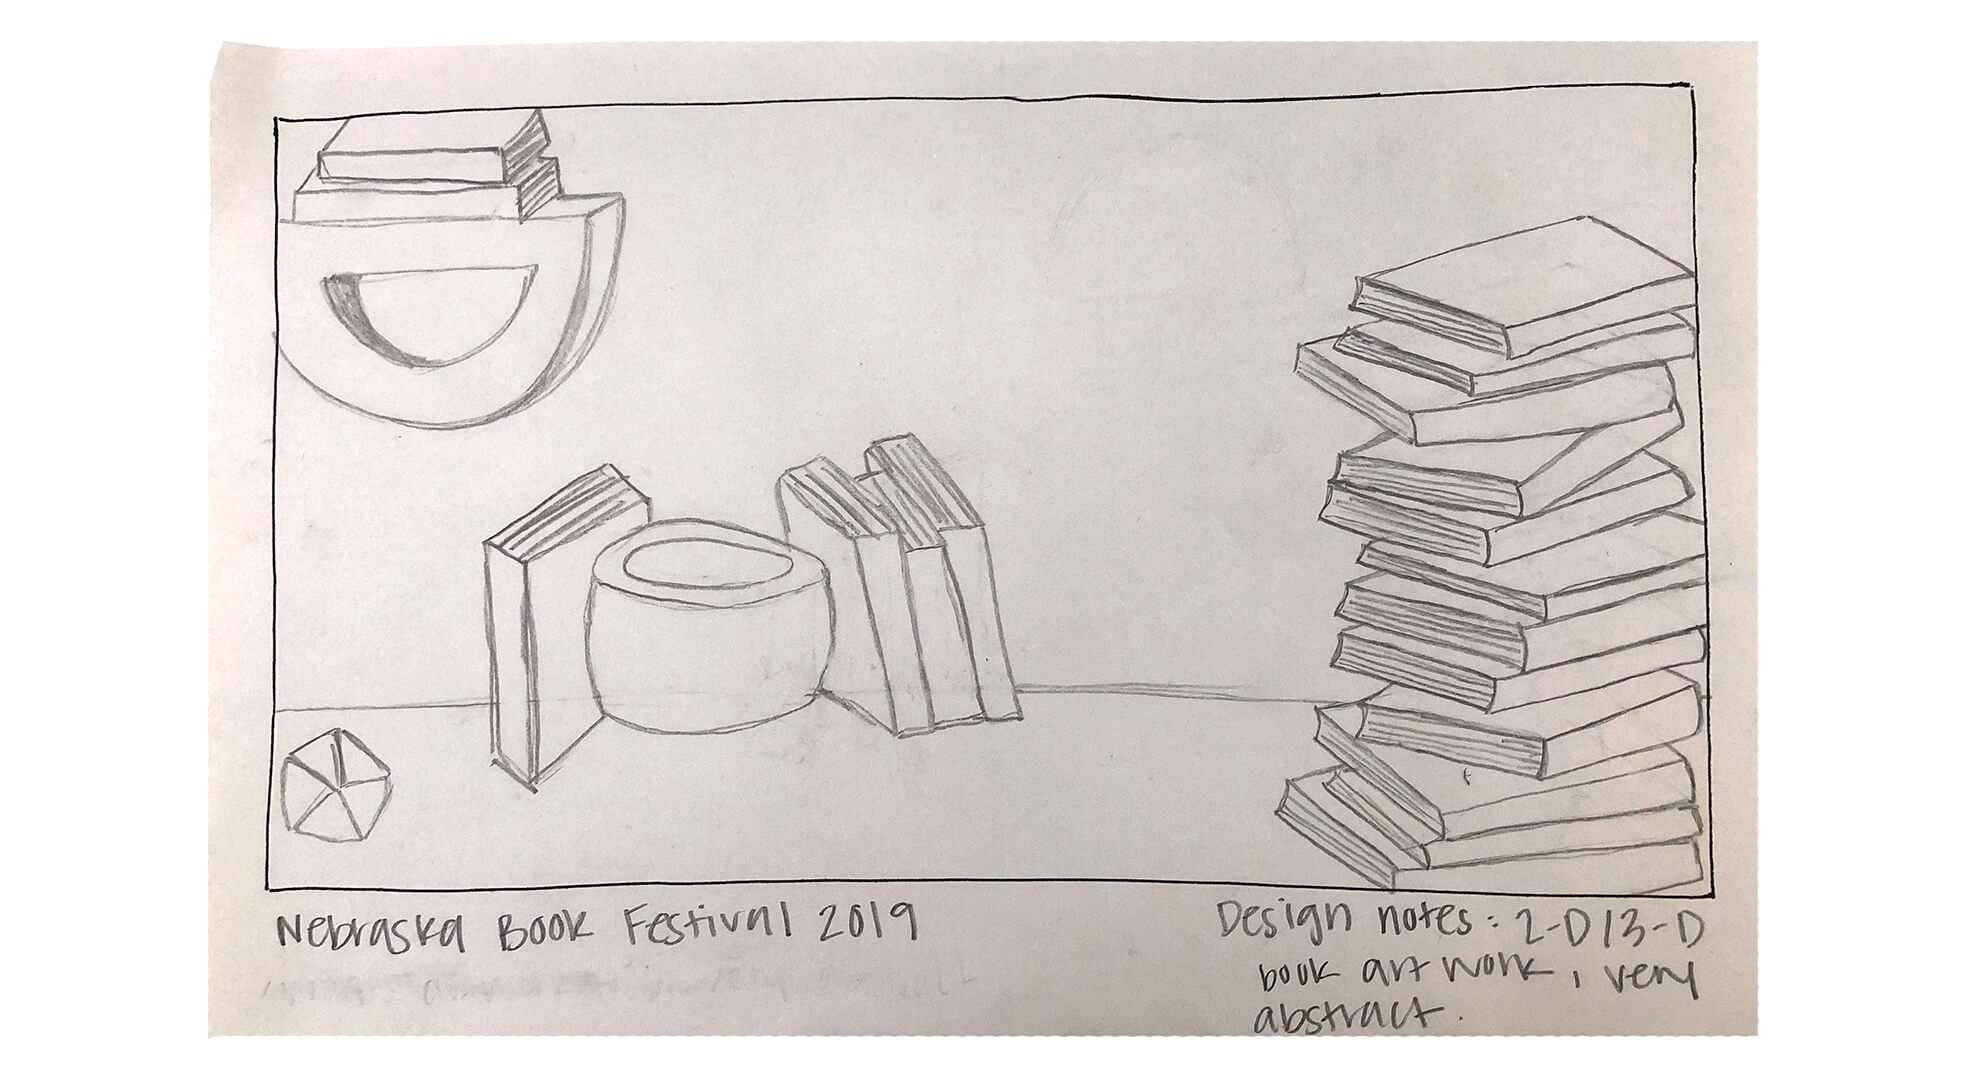 Nebraska Book Festival 2019
Design notes: 2-D/3-D
book art work, very
abstract.